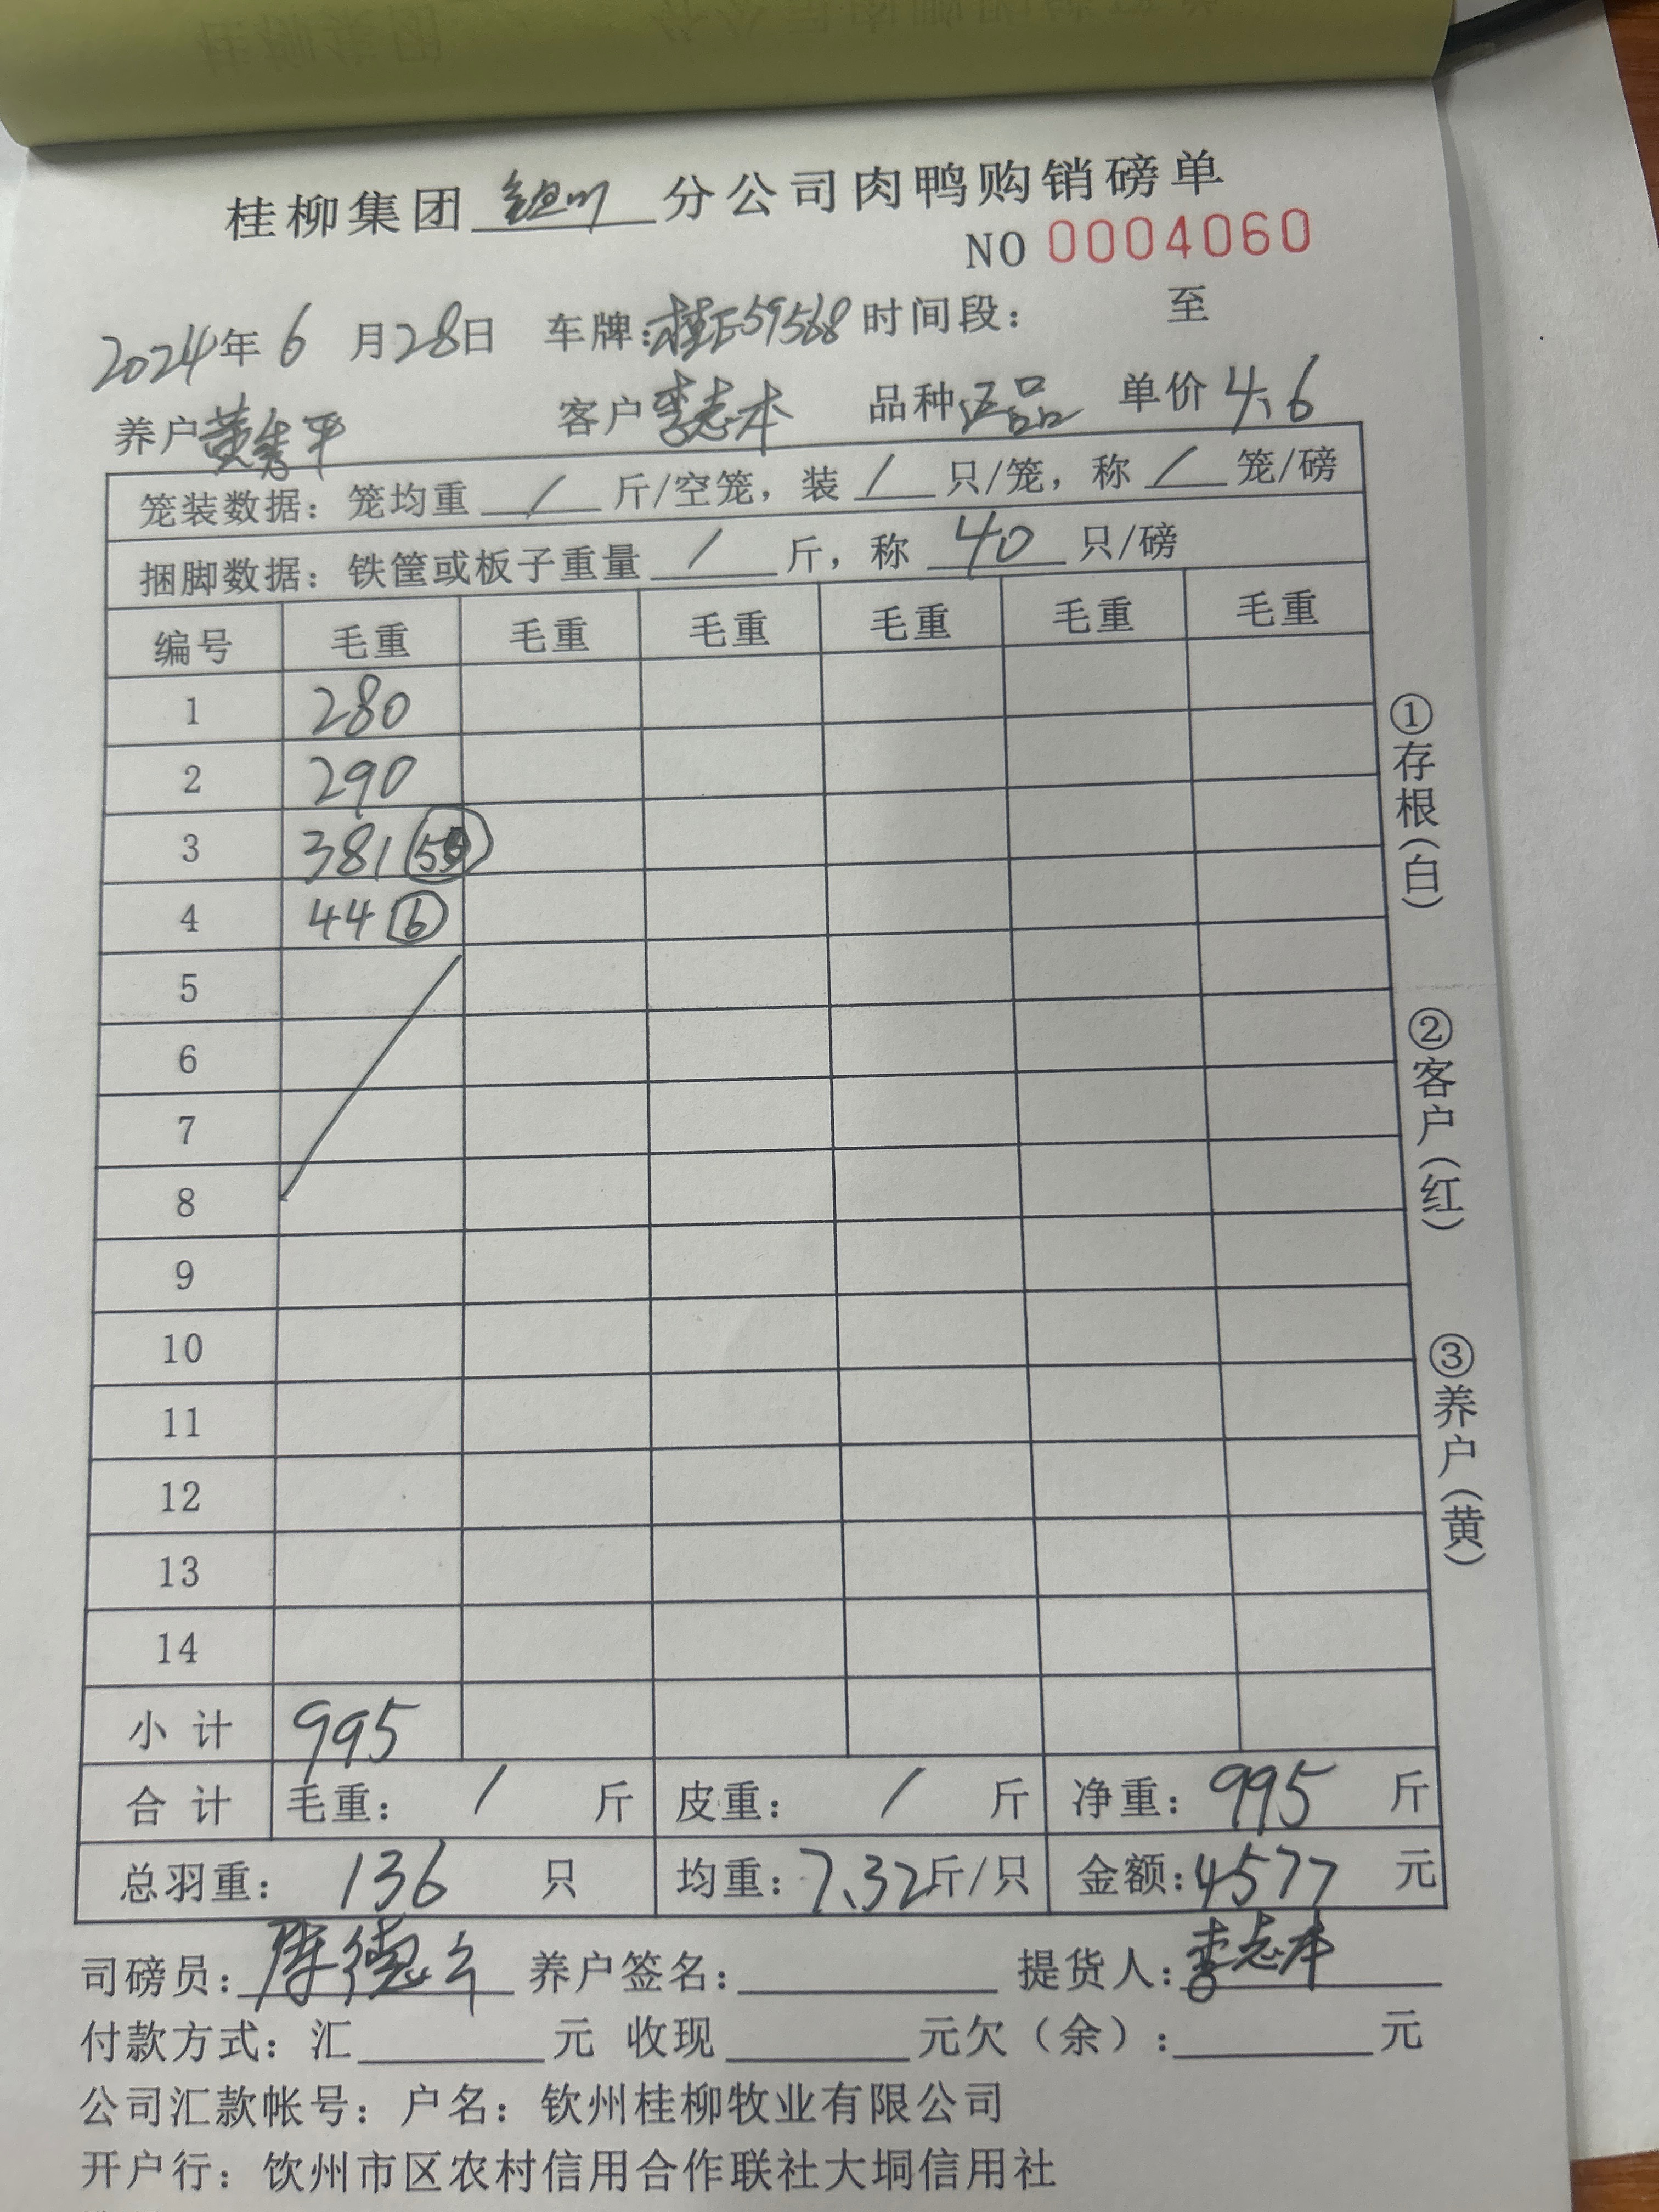 桂柳集团 钦州 分公司肉鸭购销磅单
NO 0004060
2024年 6 月 28日 车牌:桂E59568 时间段: 至
养户 黄秀平 客户 李志本 品种 正品 单价 4.6
笼装数据: 笼均重 / 斤/空笼, 装 / 只/笼, 称 / 笼/磅
捆脚数据: 铁筐或板子重量 / 斤, 称 40 只/磅
编号 毛重 毛重 毛重 毛重 毛重 毛重
1 280
2 290
3 381
4 44 6
5
6
7
8
9
10
11
12
13
14
小 计 995
合 计 毛重: / 斤 皮重: / 斤 净重: 995 斤
总羽重: 136 只 均重: 7.32斤/只 金额: 4577 元
司磅员: 陈德云 养户签名: 提货人: 李志本
付款方式: 汇 元 收现 元欠(余): 元
公司汇款帐号: 户名: 钦州桂柳牧业有限公司
开户行: 饮州市区农村信用合作联社大垌信用社
①存根(白)
②客户(红)
③养户(黄)